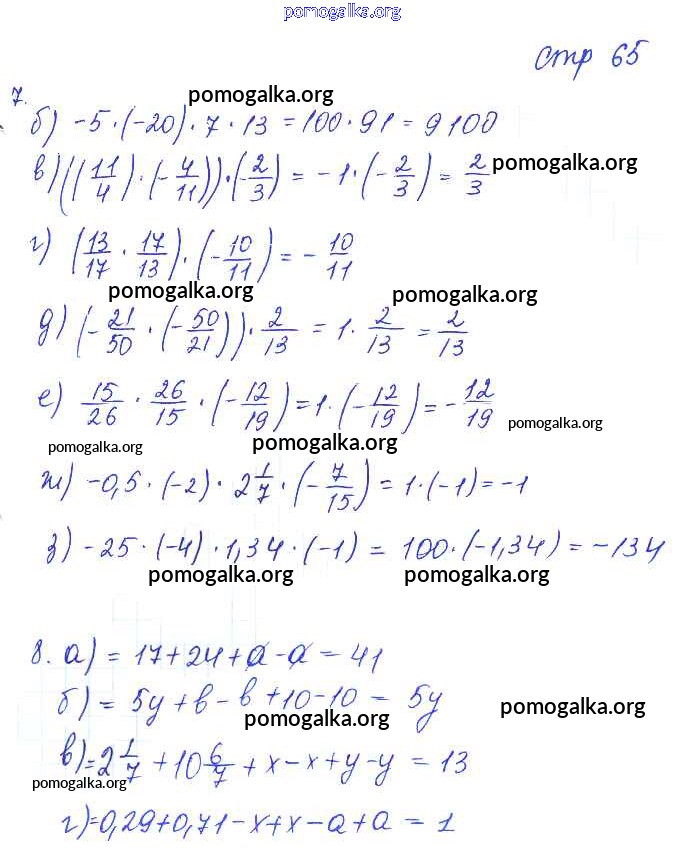 pomogalka.org
стр 65
7.
pomogalka.org
б) -5·(-20)·7·13 = 100·91 = 9100
в) ((11/4)·(-4/11))·(-2/3) = -1·(-2/3) = 2/3 pomogalka.org
г) (13/17 · 17/13)·(-10/11) = -10/11
pomogalka.org pomogalka.org
д) (-21/50 · (-50/21))· 2/13 = 1· 2/13 = 2/13
е) 15/26 · 26/15 · (-12/19) = 1·(-12/19) = -12/19
pomogalka.org pomogalka.org pomogalka.org
ж) -0,5·(-2)· 2 1/7 ·(-7/15) = 1·(-1) = -1
з) -25·(-4)·1,34·(-1) = 100·(-1,34) = -134
pomogalka.org pomogalka.org
8. а) = 17+24+a-a = 41
б) = 5y+b-b+10-10 = 5y
pomogalka.org pomogalka.org
в) = 2 1/7 + 10 6/7 + x-x+y-y = 13
pomogalka.org
г) = 0,29+0,71-x+x-a+a = 1